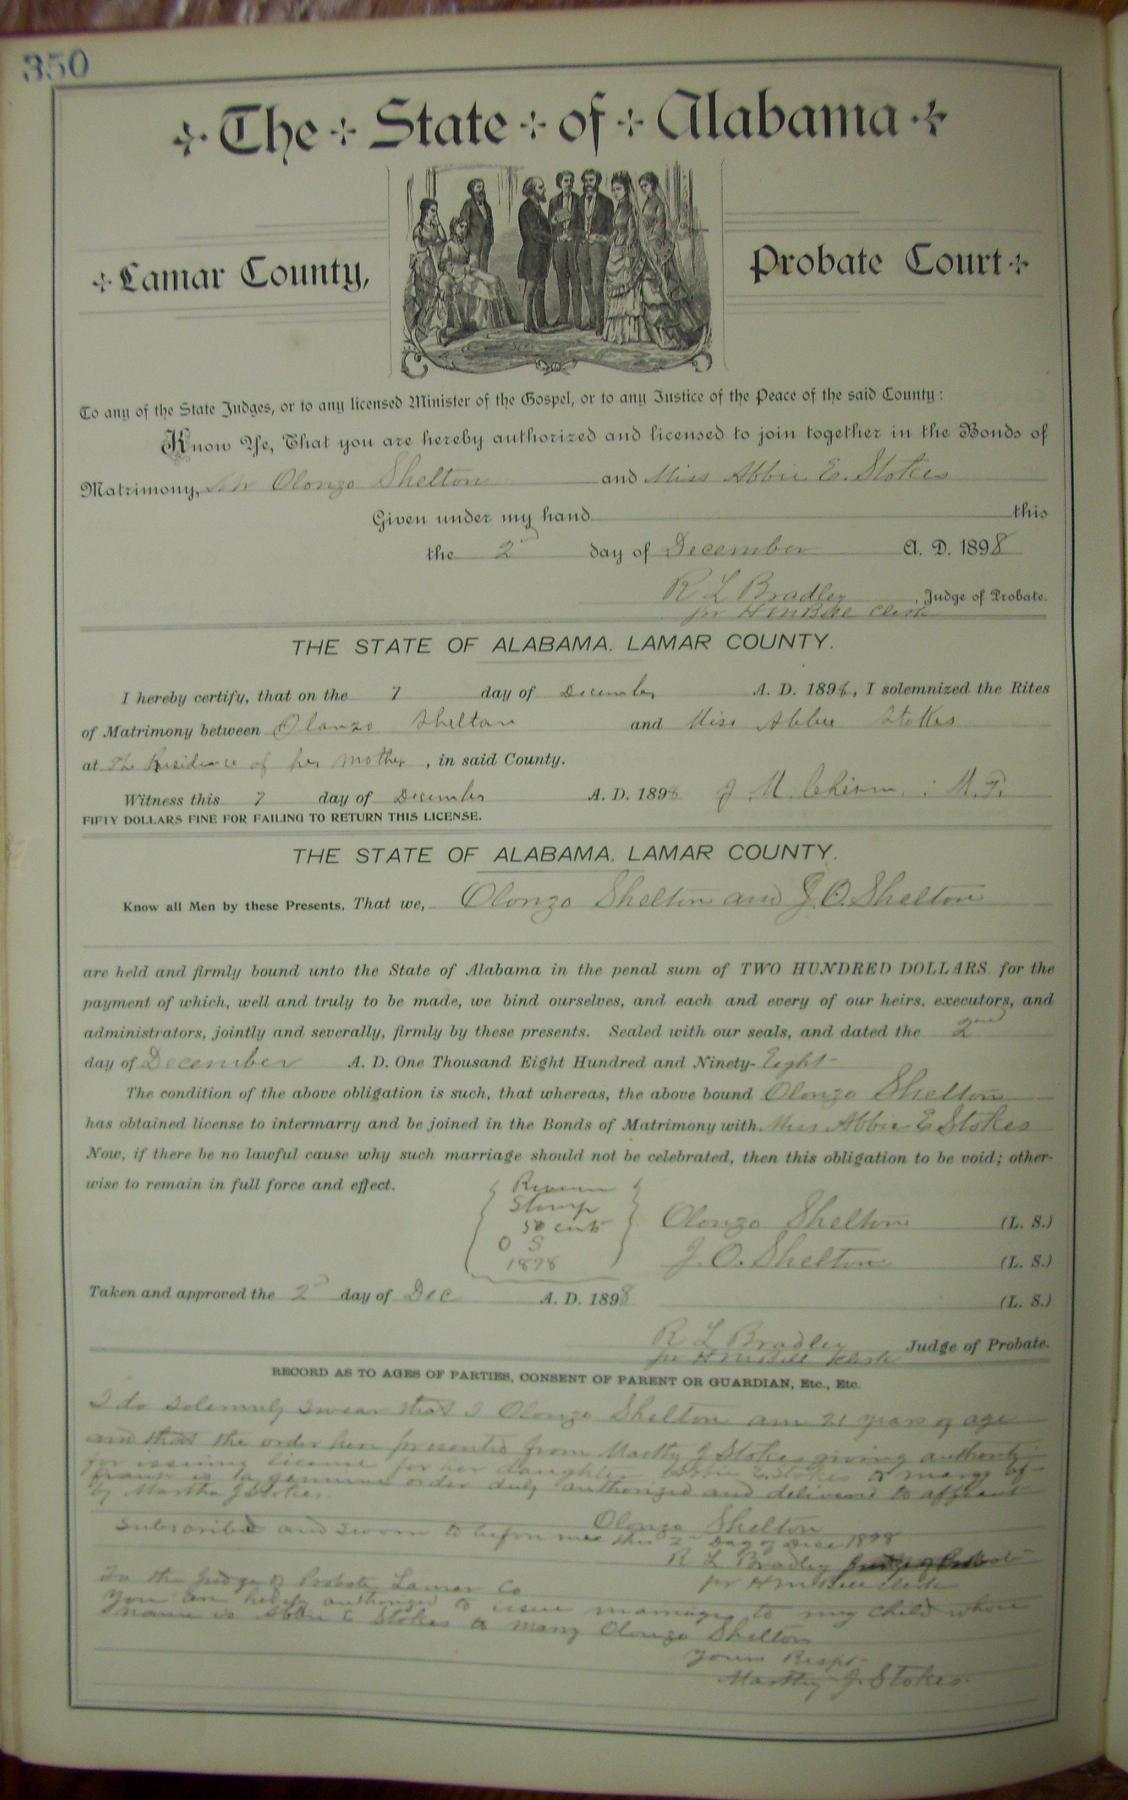 350
The State of Alabama
Lamar County, Probate Court
To any of the State Judges, or to any licensed Minister of the Gospel, or to any Justice of the Peace of the said County:
Know Ye, That you are hereby authorized and licensed to join together in the Bonds of
Matrimony, Mr Olonzo Shelton and Miss Abbie E. Stokes
Given under my hand this
the 2d day of December A. D. 1898
R L Bradley, Judge of Probate.
pr H M Bell Clerk
THE STATE OF ALABAMA. LAMAR COUNTY.
I hereby certify, that on the 7 day of December A. D. 1898, I solemnized the Rites
of Matrimony between Olanzo Shelton and Miss Abbie Stokes
at The Residence of her mother, in said County.
Witness this 7 day of December A. D. 1898 J. M.
FIFTY DOLLARS FINE FOR FAILING TO RETURN THIS LICENSE.
THE STATE OF ALABAMA. LAMAR COUNTY.
Know all Men by these Presents, That we, Olonzo Shelton and J. O. Shelton
are held and firmly bound unto the State of Alabama in the penal sum of TWO HUNDRED DOLLARS for the
payment of which, well and truly to be made, we bind ourselves, and each and every of our heirs, executors, and
administrators, jointly and severally, firmly by these presents. Sealed with our seals, and dated the 2nd
day of December A. D. One Thousand Eight Hundred and Ninety-Eight
The condition of the above obligation is such, that whereas, the above bound Olonzo Shelton
has obtained license to intermarry and be joined in the Bonds of Matrimony with Miss Abbie E Stokes
Now, if there be no lawful cause why such marriage should not be celebrated, then this obligation to be void; other-
wise to remain in full force and effect.
Revenue
Stamp
50 cents
O S
1898
Olonzo Shelton (L. S.)
J. O. Shelton (L. S.)
Taken and approved the 2d day of Dec A. D. 1898 (L. S.)
R L Bradley Judge of Probate.
pr H M Bell Clerk
RECORD AS TO AGES OF PARTIES, CONSENT OF PARENT OR GUARDIAN, Etc., Etc.
I do solemnly swear that I Olonzo Shelton am 21 years of age
and that the order here presented from Marthy J Stokes giving authority
for issuing license for her daughter Abbie E. Stokes to marry
is a genuine order duly authorized and delivered to affiant
by Martha J Stokes.
Olonzo Shelton
Subscribed and sworn to before me this 2 day of Dece 1898
R L Bradley Judge of Probate
pr H M Bell Clerk
To the Judge of Probate Lamar Co
You are hereby authorized to issue marriage to my child whose
name is Abbie E Stokes to marry Olonzo Shelton
Yours Respt
Marthy J. Stokes.